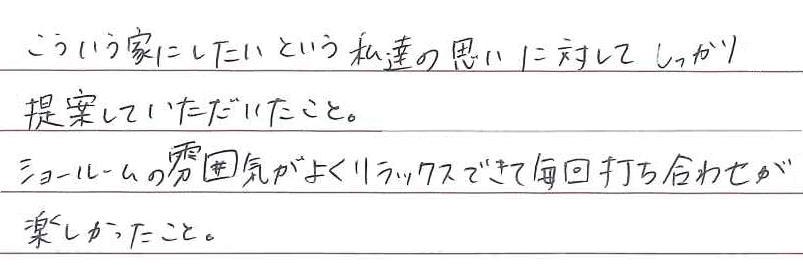 こういう家にしたいという私達の思いに対してしっかり
提案していただいたこと。
ショールームの雰囲気がよくリラックスできて毎回打ち合わせが
楽しかったこと。